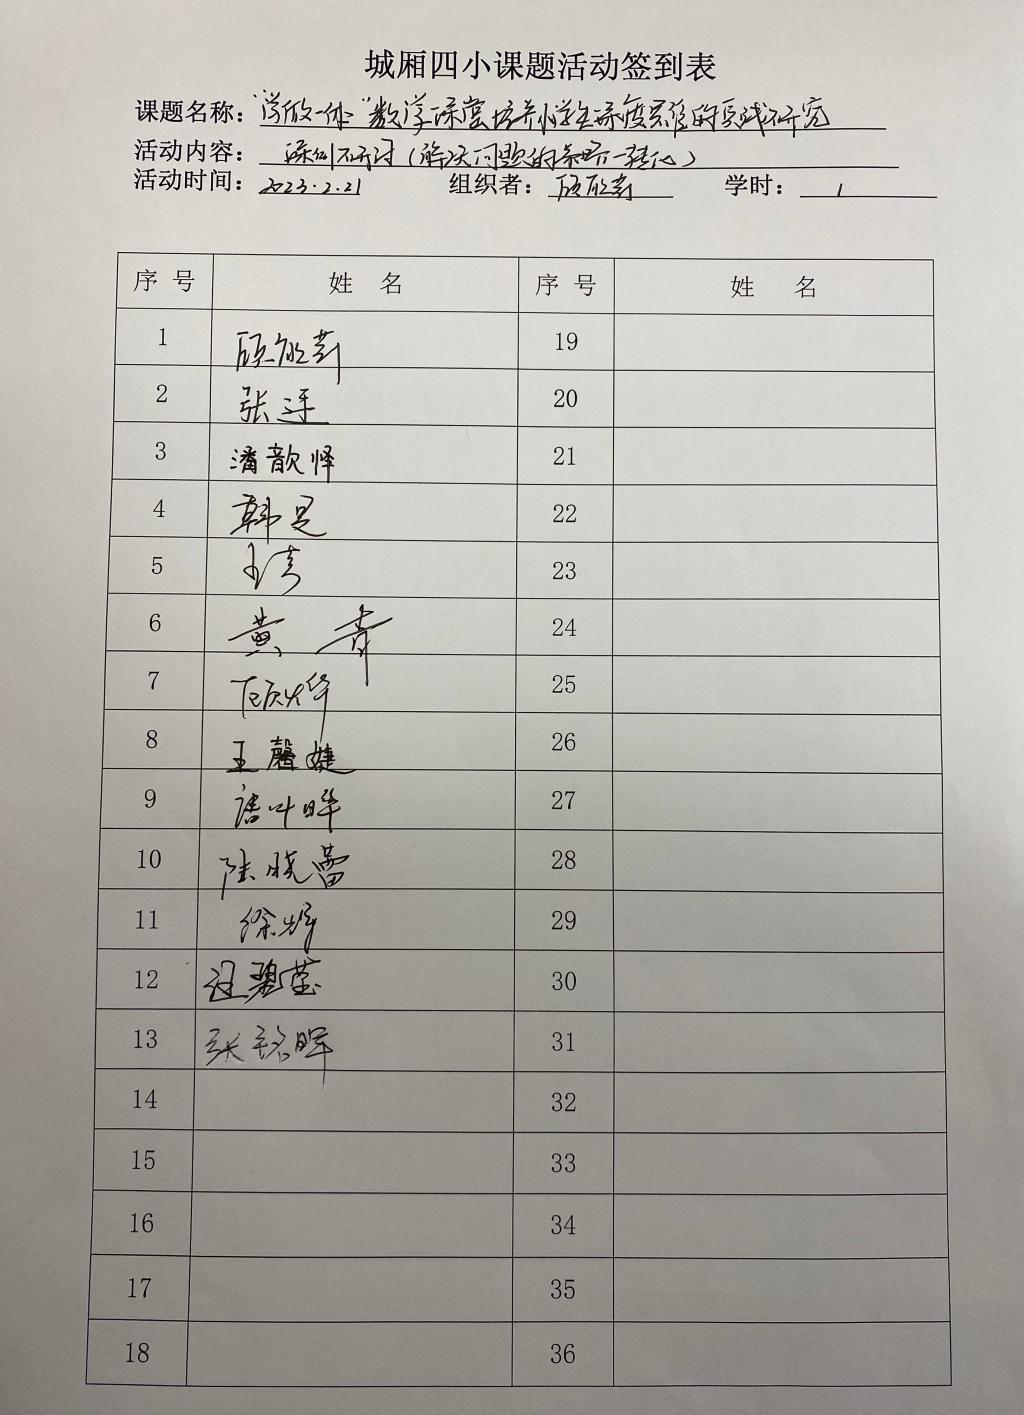 城厢四小课题活动签到表
课题名称：数学课堂培养小学生深度思维的实践研究
活动内容：课例研讨（解决问题的策略—转化）
活动时间：2023.2.21 组织者： 学时：1
序号 姓名 序号 姓名
1 顾 19
2 张 20
3 潘歆怿 21
4 韩昱 22
5 王 23
6 黄青 24
7 顾 25
8 王馨婕 26
9 唐叶晔 27
10 陆晓蕾 28
11 徐 29
12 汪碧莹 30
13 张铭晖 31
14 32
15 33
16 34
17 35
18 36